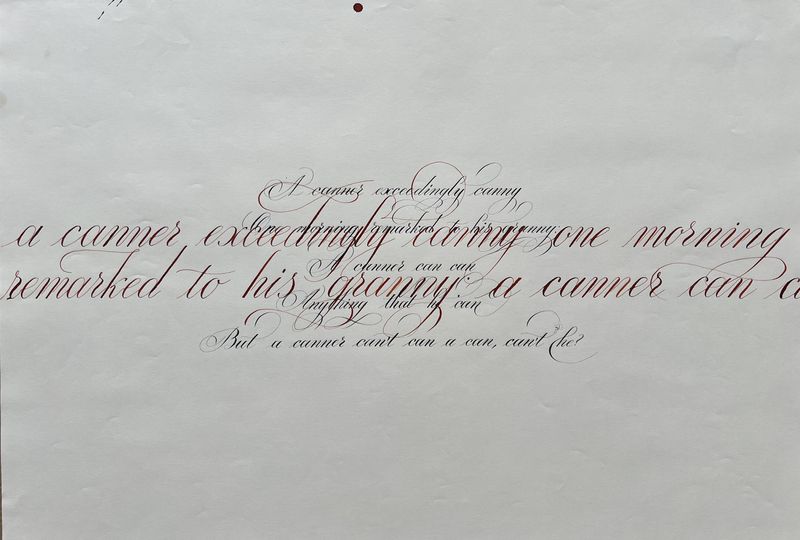 A canner exceedingly canny
a canner exceedingly canny one morning
One morning remarked to his granny:
A canner can can
remarked to his granny: a canner can
Anything that he can
But a canner can't can a can, can't he?